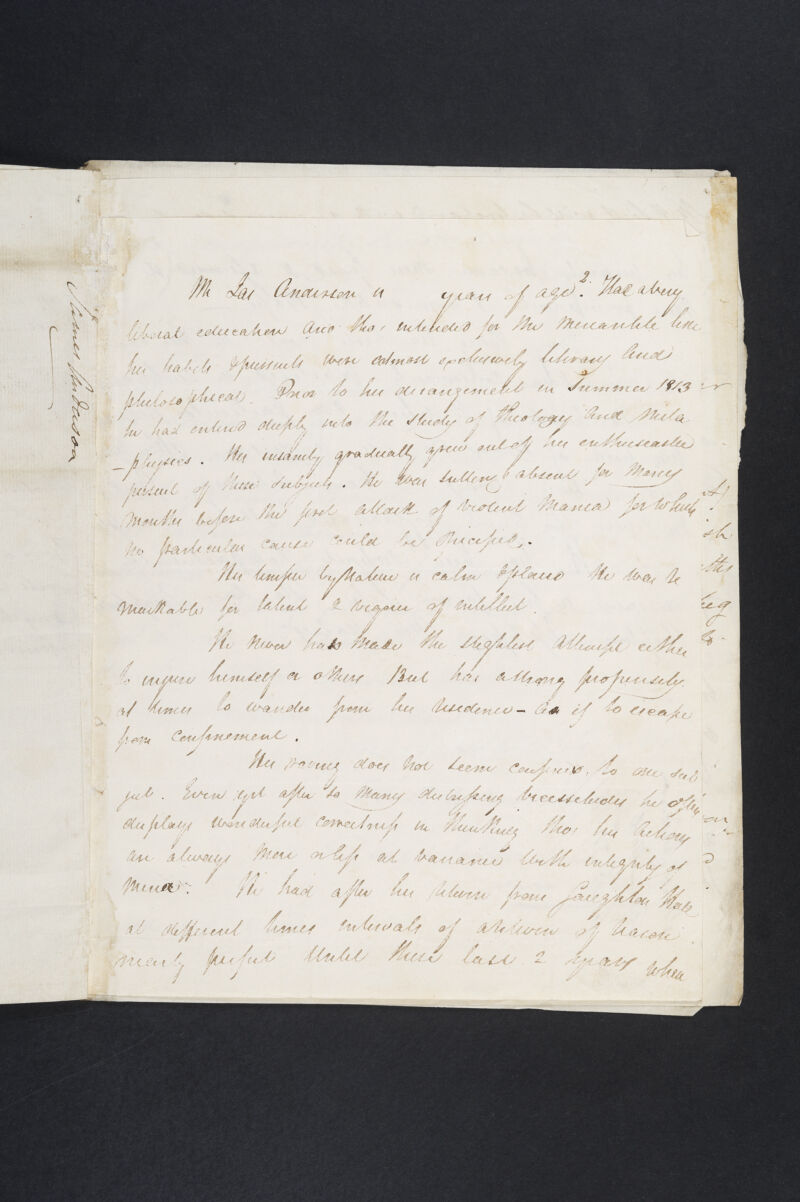 Mr Jas Anderson is years of age 2. Had a very
liberal education and tho' intended for the mercantile line
his habits & pursuits were almost exclusively literary and
philosophical. Prior to his derangement in Summer 1813
he had entered deeply into the study of theology and meta
-physics. His insanity gradually grew out of his enthusiastic
pursuit of these subjects. He was sullen & absent for many
months before the first attack of violent mania for which
no particular cause could be
His temper by nature is calm & He was re
markable for talent & vigour of intellect.
He never has made the slightest attempt either
to injure himself or others But has a strong propensity
at times to wander from his residence – as if to escape
from confinement.
His raving does not seem confined to one sub
ject. Even yet after so many distressing vicissitudes he often
displays wonderful correctness in thinking tho' his actions
are always more or less at variance with integrity of
mind. He had after his return from
at different times intervals of of reason
nearly perfect until these last 2 years when
James Anderson